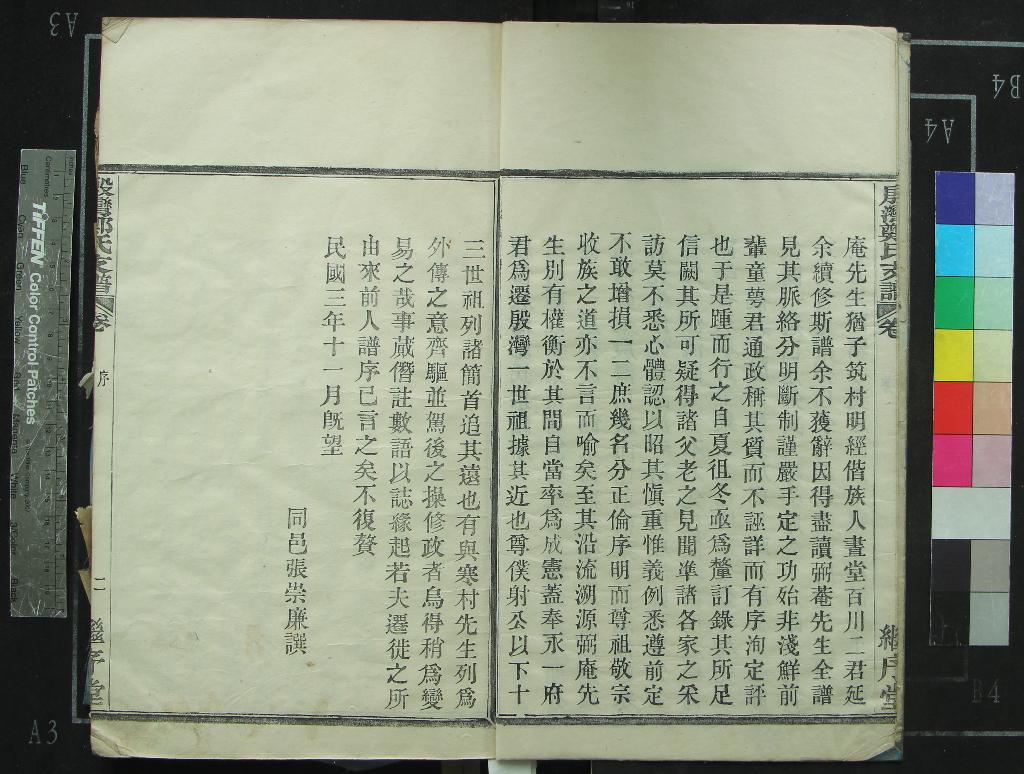 庵先生猶子筑村明經偕族人晝堂百川二君延
余續修斯譜余不獲辭因得盡讀弼菴先生全譜
見其脈絡分明斷制謹嚴手定之功始非淺鮮前
輩童萼君通政稱其質而不誣詳而有序洵定評
也于是踵而行之自夏徂冬亟爲釐訂錄其所足
信闕其所可疑得諸父老之見聞準諸各家之采
訪莫不悉心體認以昭其愼重惟義例悉遵前定
不敢增損一二庶幾名分正倫序明而尊祖敬宗
收族之道亦不言而喻矣至其沿流溯源弼庵先
生別有權衡於其間自當率爲成憲蓋奉永一府
君爲遷殷灣一世祖據其近也尊僕射公以下十
三世祖列諸簡首追其遠也有與寒村先生列爲
外傳之意齊驅並駕後之操修政者烏得稍爲變
易之哉事蕆僭註數語以誌緣起若夫遷徙之所
由來前人譜序已言之矣不復贅
民國三年十一月旣望
同邑張崇廉譔
殷灣鄭氏支譜
卷
序
二
繼序堂
殷灣鄭氏支譜
卷
繼序堂
TIFFEN Color Control Patches
A3
A4
B4
A3
B4